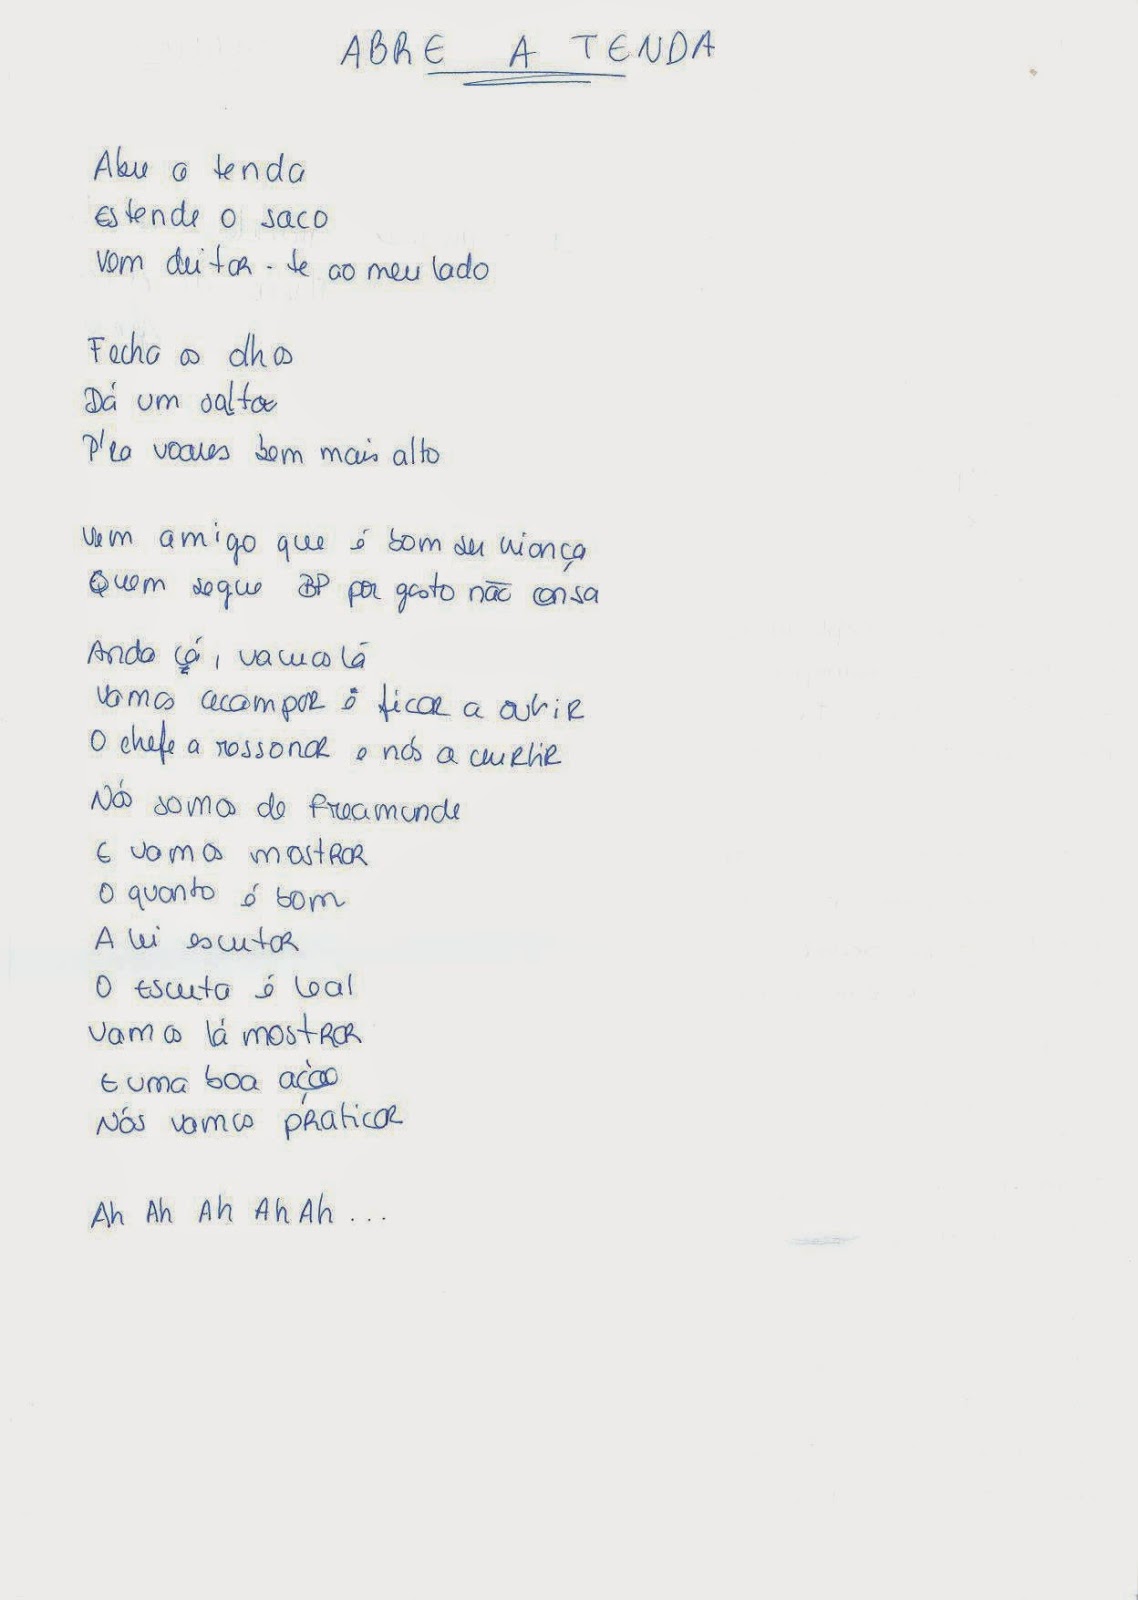 ABRE A TENDA
Abre a tenda
Estende o saco
Vem deitar-te ao meu lado
Fecha os olhos
Dá um salto
P'ra voares bem mais alto
Vem amigo que é bom ser criança
Quem segue BP por gosto não cansa
Anda cá, vamos lá
Vamos acampar é ficar a ouvir
O chefe a rossonar e nós a curtir
Nós somos de Freamunde
E vamos mostrar
O quanto é bom
A lei escutar
O Escuta é leal
Vamos lá mostrar
E uma boa ação
Nós vamos praticar
Ah Ah Ah Ah Ah ...